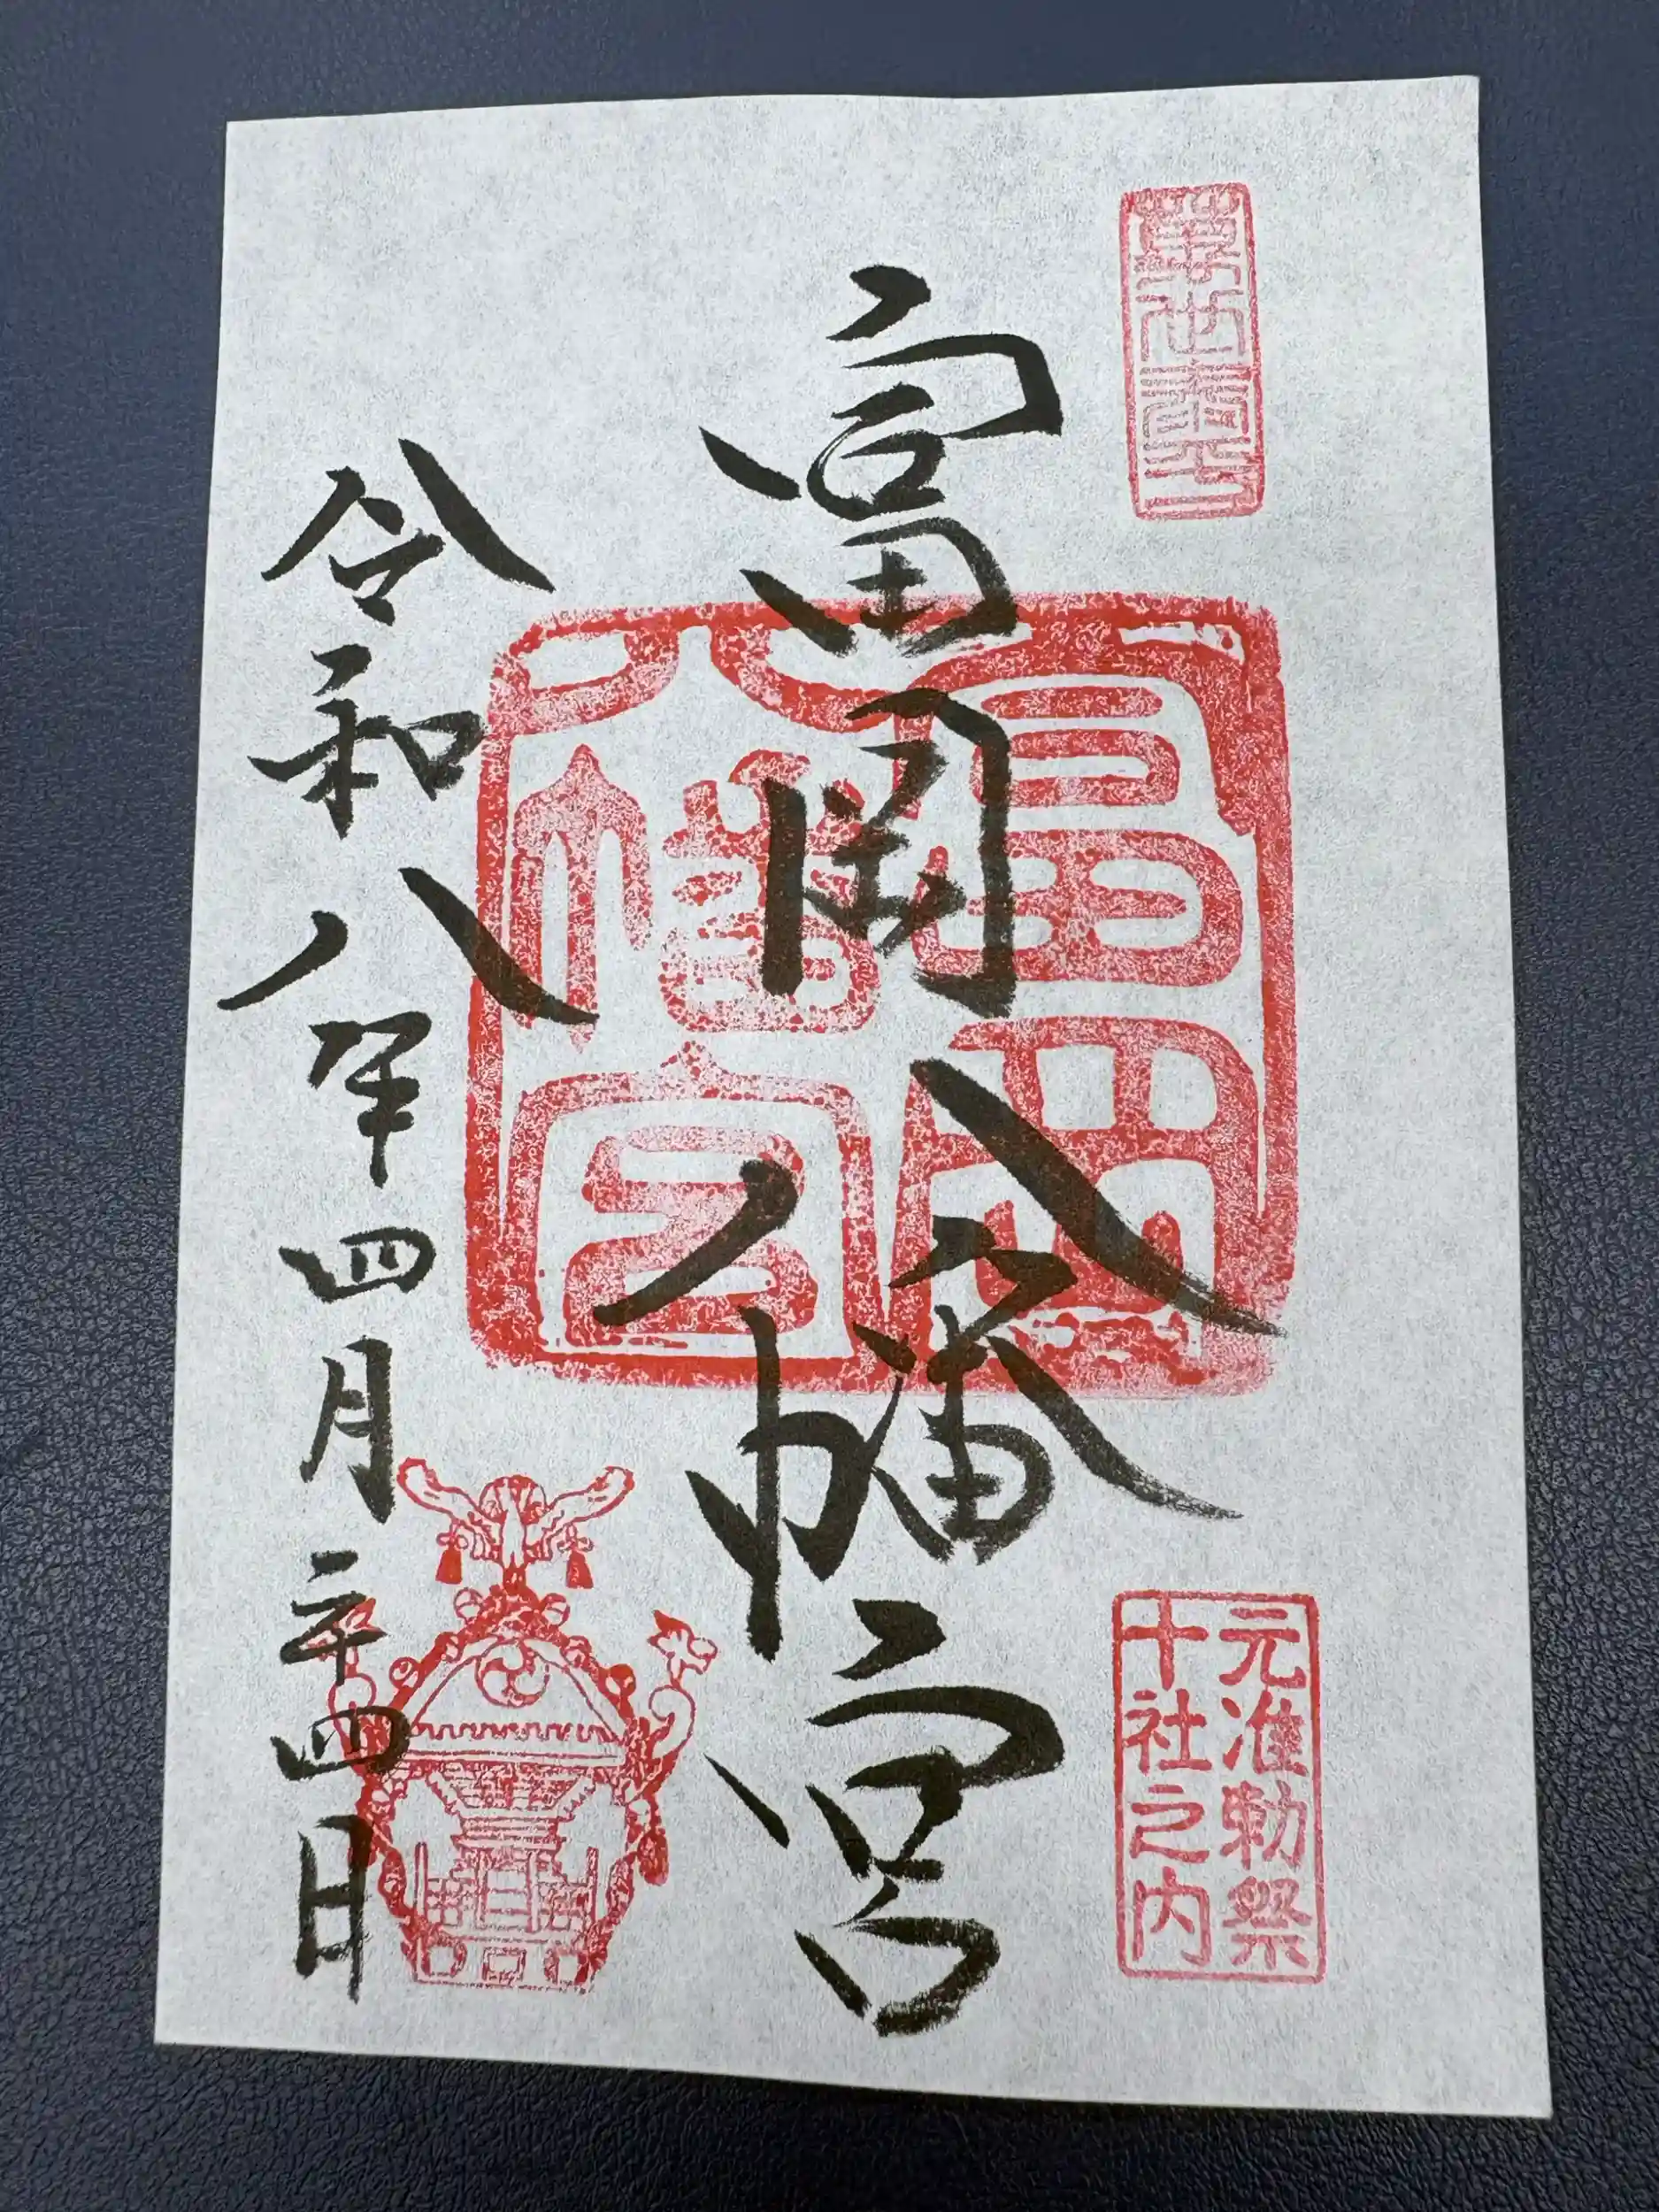 元准勅祭
十社之内
富岡八幡宮
富岡
八幡宮
令和八年四月二十四日